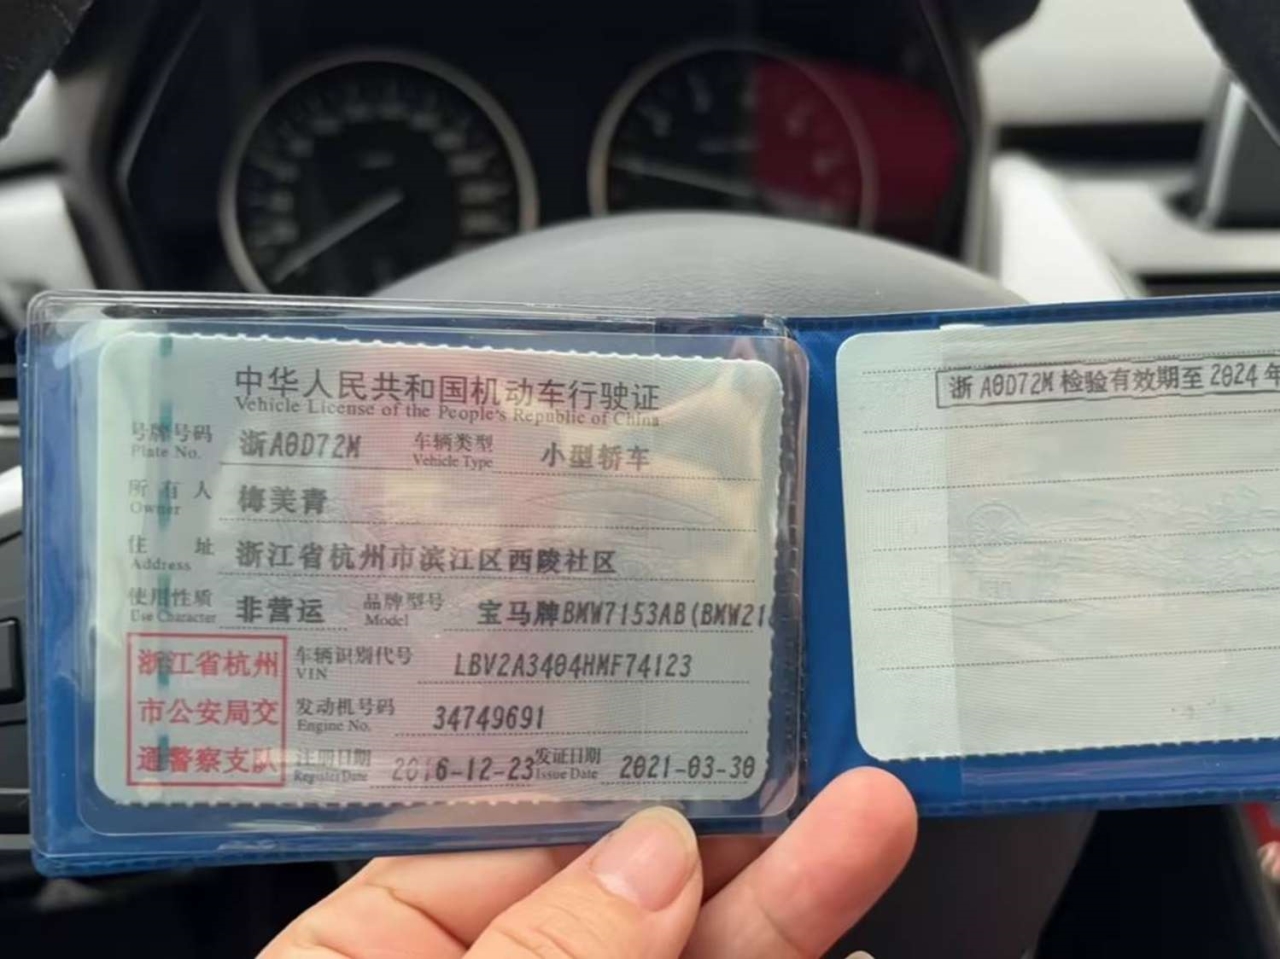 中华人民共和国机动车行驶证
Vehicle License of the People's Republic of China
号牌号码 浙A0D72M 车辆类型 小型轿车
Plate No. Vehicle Type
所有人 梅美青
Owner
住址 浙江省杭州市滨江区西陵社区
Address
使用性质 非营运 品牌型号 宝马牌BMW7153AB(BMW21
Use Character Model
浙江省杭州
市公安局交
通警察支队
车辆识别代号 LBV2A3404HMF74123
VIN
发动机号码 34749691
Engine No.
注册日期 2016-12-23 发证日期 2021-03-30
Register Date Issue Date
浙A0D72M 检验有效期至 2024 年